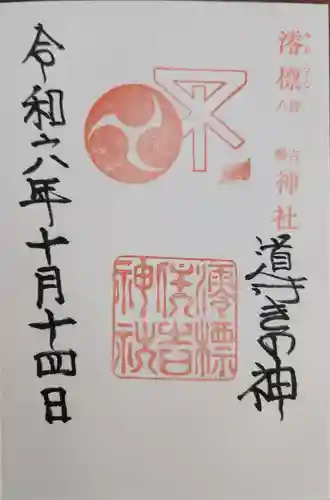 澪標
神社
道きの神
澪標
住吉
神社
令和六年十月十四日